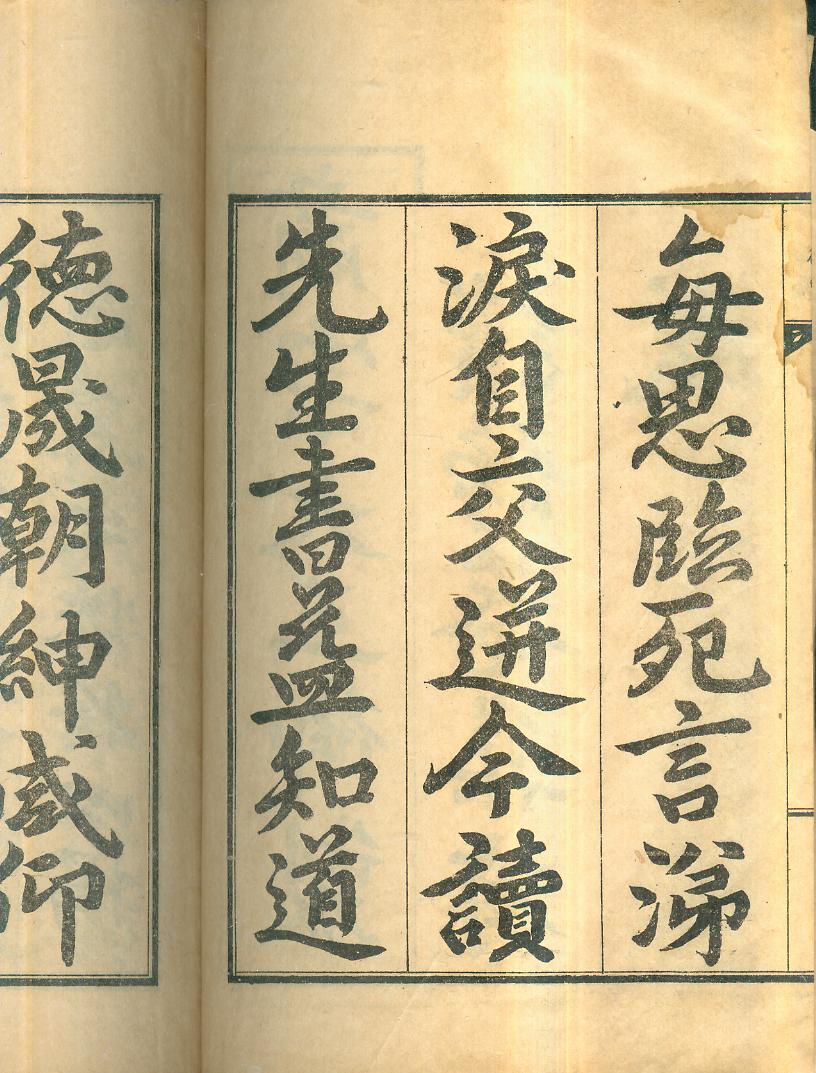 每思臨死言涕
淚自交迸今讀
先生書益知道
德晟朝紳咸仰